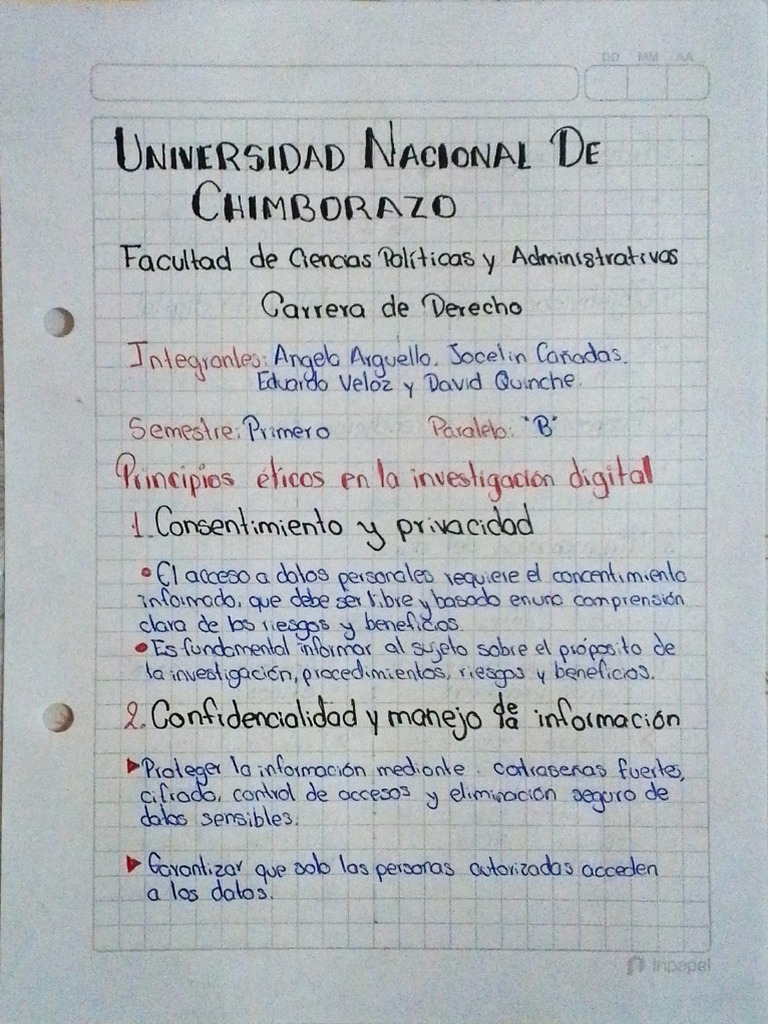 DD MM AA
UNIVERSIDAD NACIONAL DE
CHIMBORAZO
Facultad de Ciencias Políticas y Administrativas
Carrera de Derecho
Integrantes: Angela Arguello, Jocelin Cañadas,
Eduardo Veloz y David Quinche
Semestre: Primero Paralelo: "B"
Principios éticos en la investigación digital
1. Consentimiento y privacidad
• El acceso a datos personales requiere el concentimiento
informado, que debe ser libre y basado en una comprensión
clara de los riesgos y beneficios.
• Es fundamental informar al sujeto sobre el própósito de
la investigación, procedimientos, riesgos y beneficios.
2. Confidencialidad y manejo de la información
▶ Proteger la información mediante contraseñas fuertes,
cifrado, control de accesos y eliminación seguro de
datos sensibles.
▶ Garantizar que solo las personas autorizadas acceden
a los datos.
inpapel